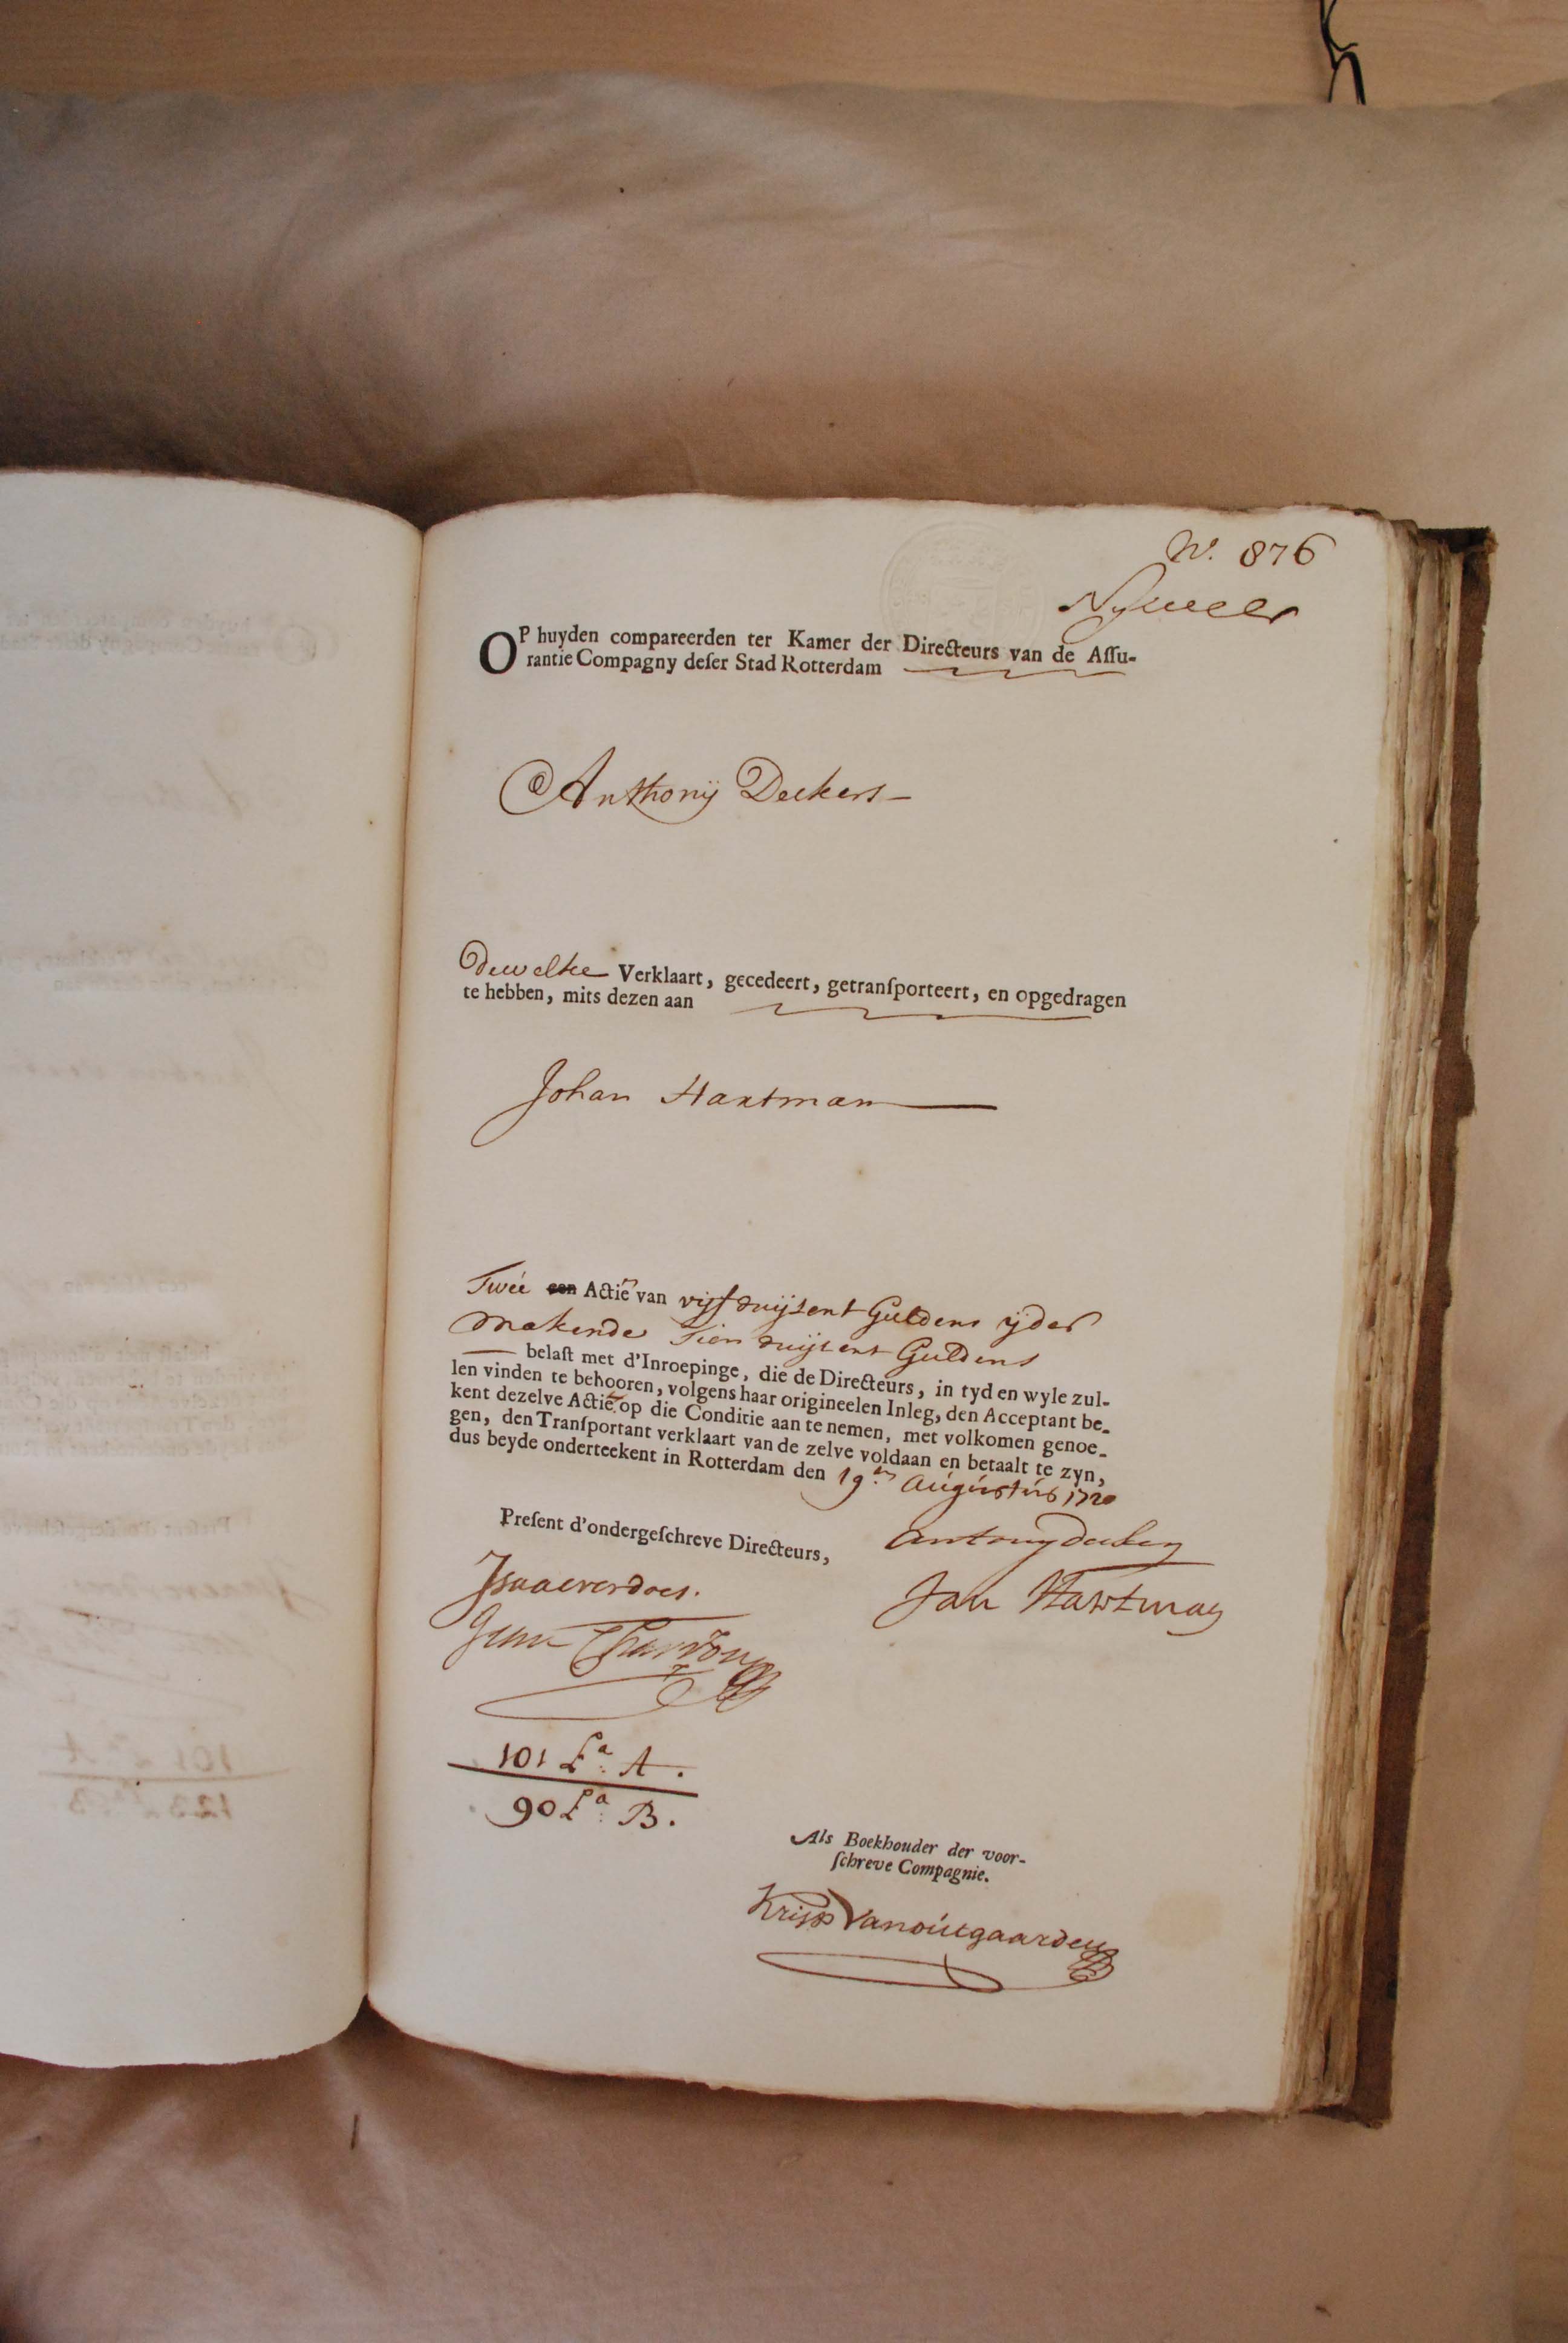 N. 876
OP huyden compareerden ter Kamer der Directeurs van de Assu-
rantie Compagny deser Stad Rotterdam
Anthonÿ Deckers
Dewelke Verklaart, gecedeert, getransporteert, en opgedragen
te hebben, mits dezen aan
Johan Hartman
Twée een Actiën van vijf duijsent Guldens ijder
makende Tien duijsent Guldens
belast met d'Inroepinge, die de Directeurs, in tyd en wyle zul-
len vinden te behooren, volgens haar origineelen Inleg, den Acceptant be-
kent dezelve Actie op die Conditie aan te nemen, met volkomen genoe-
gen, den Transportant verklaart van de zelve voldaan en betaalt te zyn,
dus beyde onderteekent in Rotterdam den 19en Augústús 1720
Present d'ondergeschreve Directeurs,
Antony Deckers
Isaac verdoes.
Jan Hartman
Jean Charron
101 La: A.
90 La: B.
Als Boekhouder der voor-
schreve Compagnie.
Kriss Vanoutgaarden